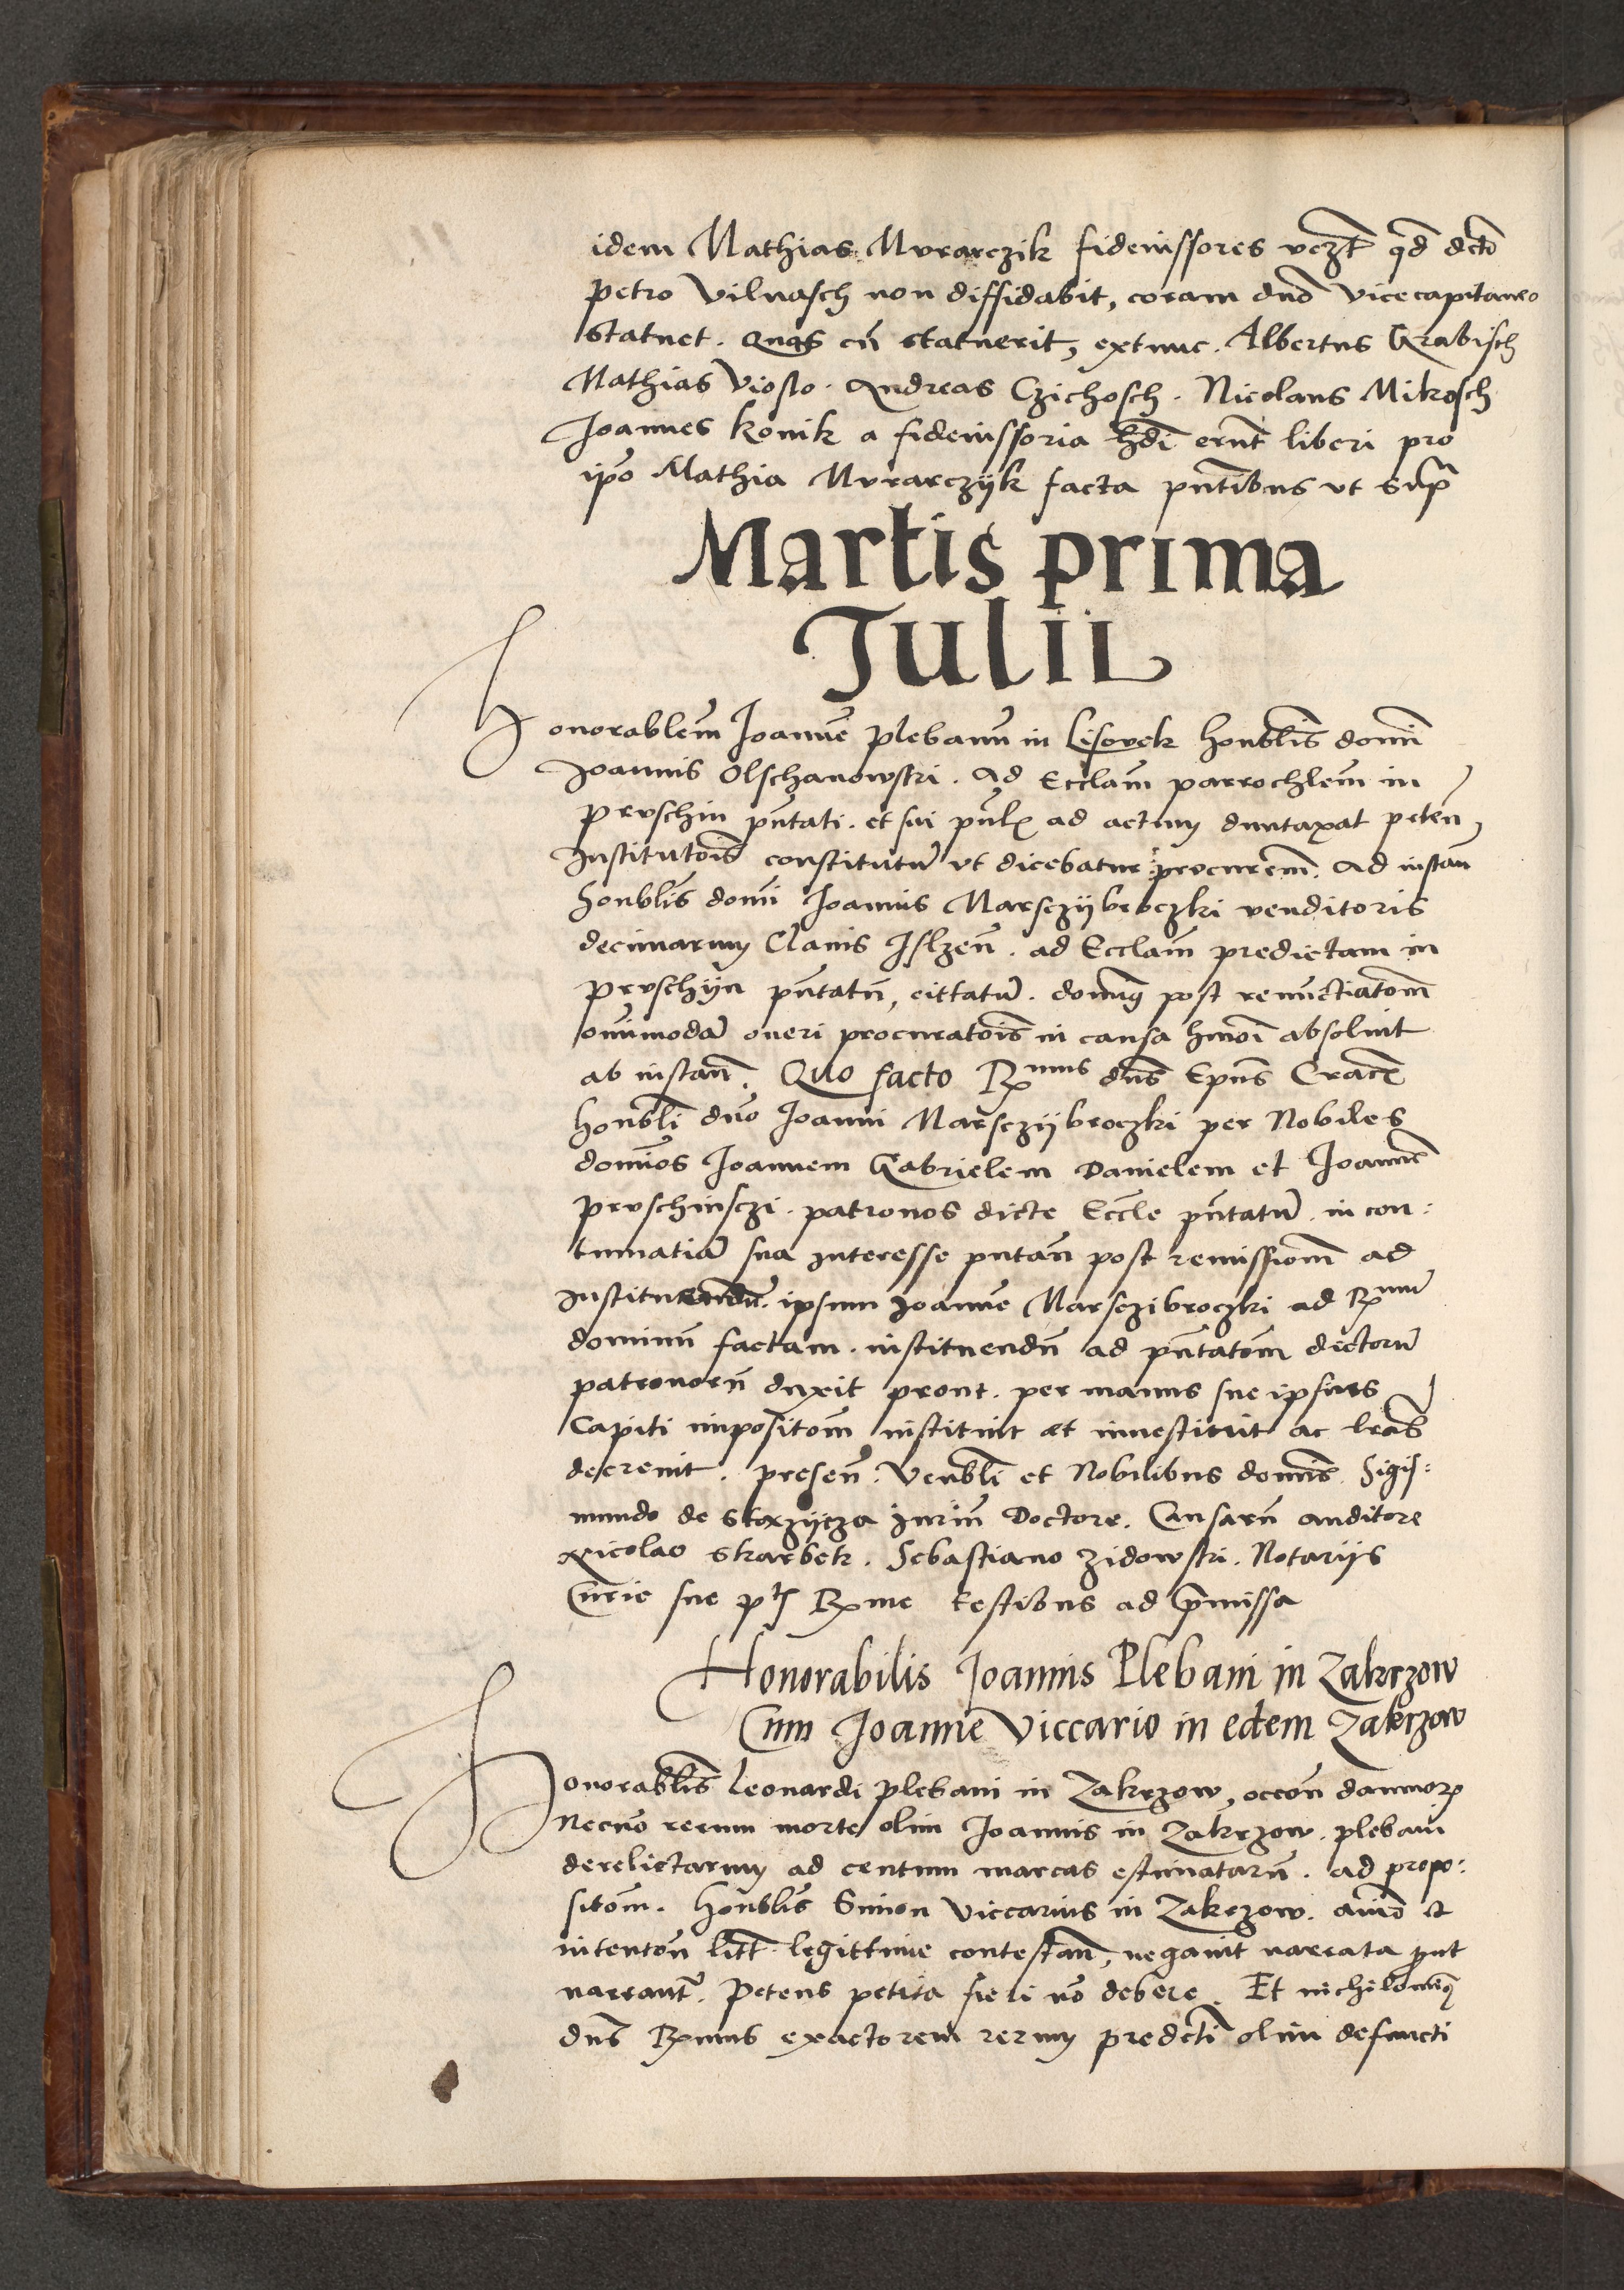 idem Mathias Mvrarczik fideiussores vczt qd dcto
petro Vilnasch non diffidabit, coram dno Vicecapitaneo
statuet. Quos cu statuerit, extunc. Albertus Grabisch
Mathias Viosło. Andreas Czichosch. Nicolaus Mikosch
Joannes konik a fideiussoria hdi erunt liberi pro
ipo Mathia Mvrarczijk facta pntibus vt supra
Martis prima
Julii
Honorablem Joanne plebanu in Lisovek honblis domi
Joannis Olschanowski. Ad Ecclam parrochlem in
prvschin pntati. et sui ad actum duntaxat peten
Institutois constitutu vt dicebatur procurem. Ad instan
honblis domi Joannis Marsczijbroczki venditoris
decimarum Clavis Ilzen. ad Ecclam predictam in
prvschijn pntatu, cittatu. domus post renunctiatom
omnimoda oneri procuratois in causa hmoi absoluit
ab instan. Quo facto Rmus dns Epus Cracn
honbli dno Joanni Marsczijbroczki per Nobiles
domios Joannem Gabrielem Danielem et Joanne
prvschinsczi. patronos dicte Eccle pntatu. in con:
tumatia sua interesse putan post remissiom ad
Instituendu. ipsum Joanne Marsczibroczki ad Rmu
dominu factam. instituendu ad pntatom dictoru
patronoru duxit pront. per manus sue ipsius
Capiti impositom instituit et inuestiuit ac lras
decreuit. presen. Venbli et Nobilibus domis Sigis:
mundo de Starzijcza Juriu Doctore. Causaru auditore
Nicolao Skarbek. Sebastiano Zidowski. Notarijs
Curie sue pt Rme testibus ad pmissa
Honorabilis Joannis Plebani in Zakrzow
Cum Joanne Viccario in edem Zakrzow
Honorablis Leonardi plebani in Zakrzow, occon damnor
Necno rerum morte olim Joannis in Zakrzow. plebani
derelictarum ad centum marcas estimataru. ad propo:
sitom. honblis Simon Viccarius in Zakrzow. animo et
intenton litt legittime contestan, negauit narrata put
narrant. Petens petita fieri no debere. Et nichilomiq
dns Rmus exactorem rerum predcti olim defuncti